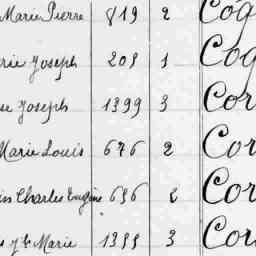 Marie Pierre 819 2 Cog
rie Joseph 201 1 Cog
se Joseph 1399 3 Cor
Marie Louis 676 2 Cor
is Charles Eugène 636 2 Cor
s J. Bte Marie 1399 3 Cor